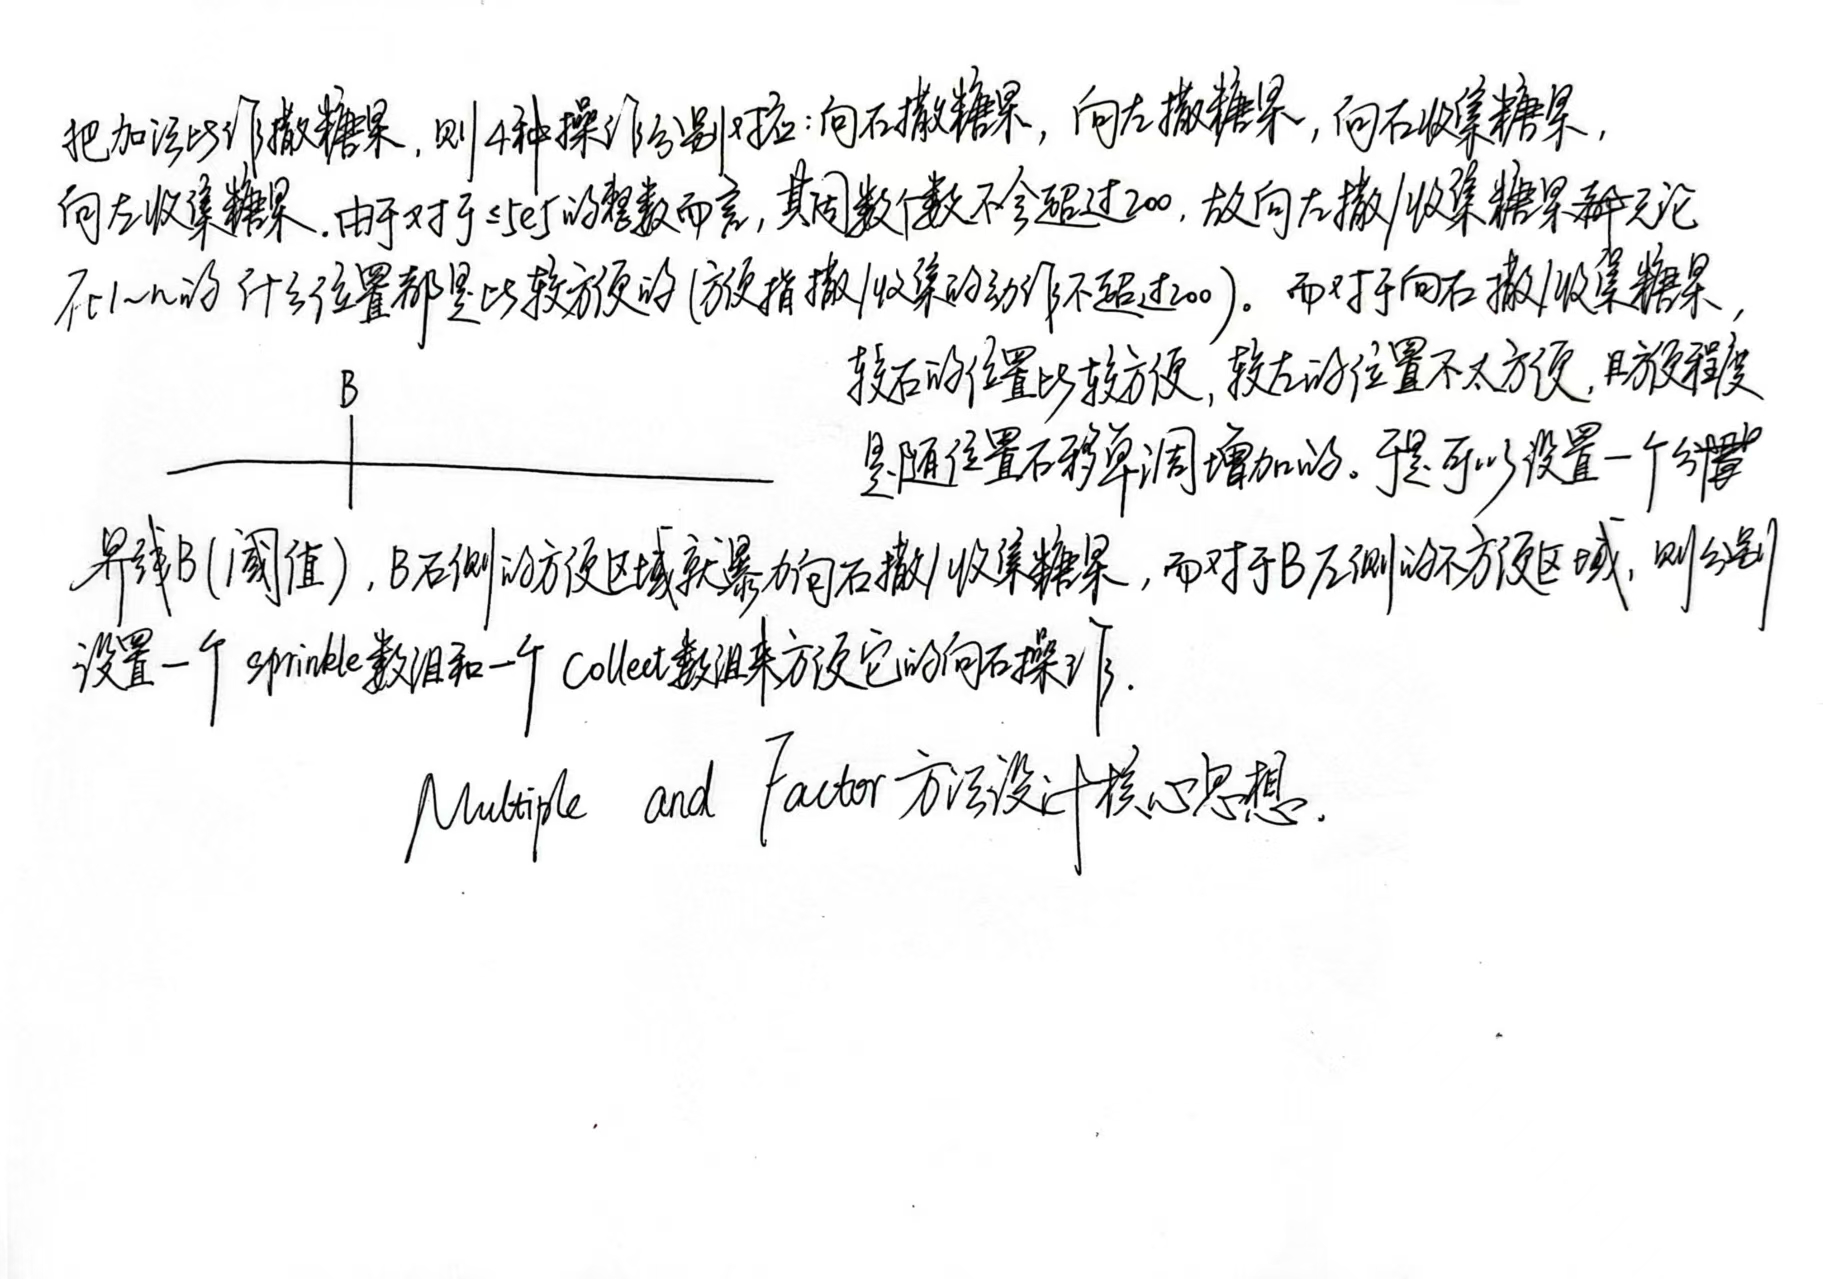 把加法比作撒糖果,则4种操作分别对应:向右撒糖果,向左撒糖果,向右收集糖果,
向左收集糖果.由于对于≤5e5的整数而言,其因数个数不会超过200,故向左撒/收集糖果无论
在1~n的什么位置都是比较方便的(方便指撒/收集的动作不超过200)。而对于向右撒/收集糖果,
较右的位置比较方便,较左的位置不太方便,且方便程度
B
是随位置右移单调增加的。于是可以设置一个分
界线B(阈值),B右侧的方便区域就暴力向右撒/收集糖果,而对于B左侧的不方便区域,则分别
设置一个sprinkle数组和一个collect数组来方便它的向右操作.
Multiple and Factor方法设计核心思想.